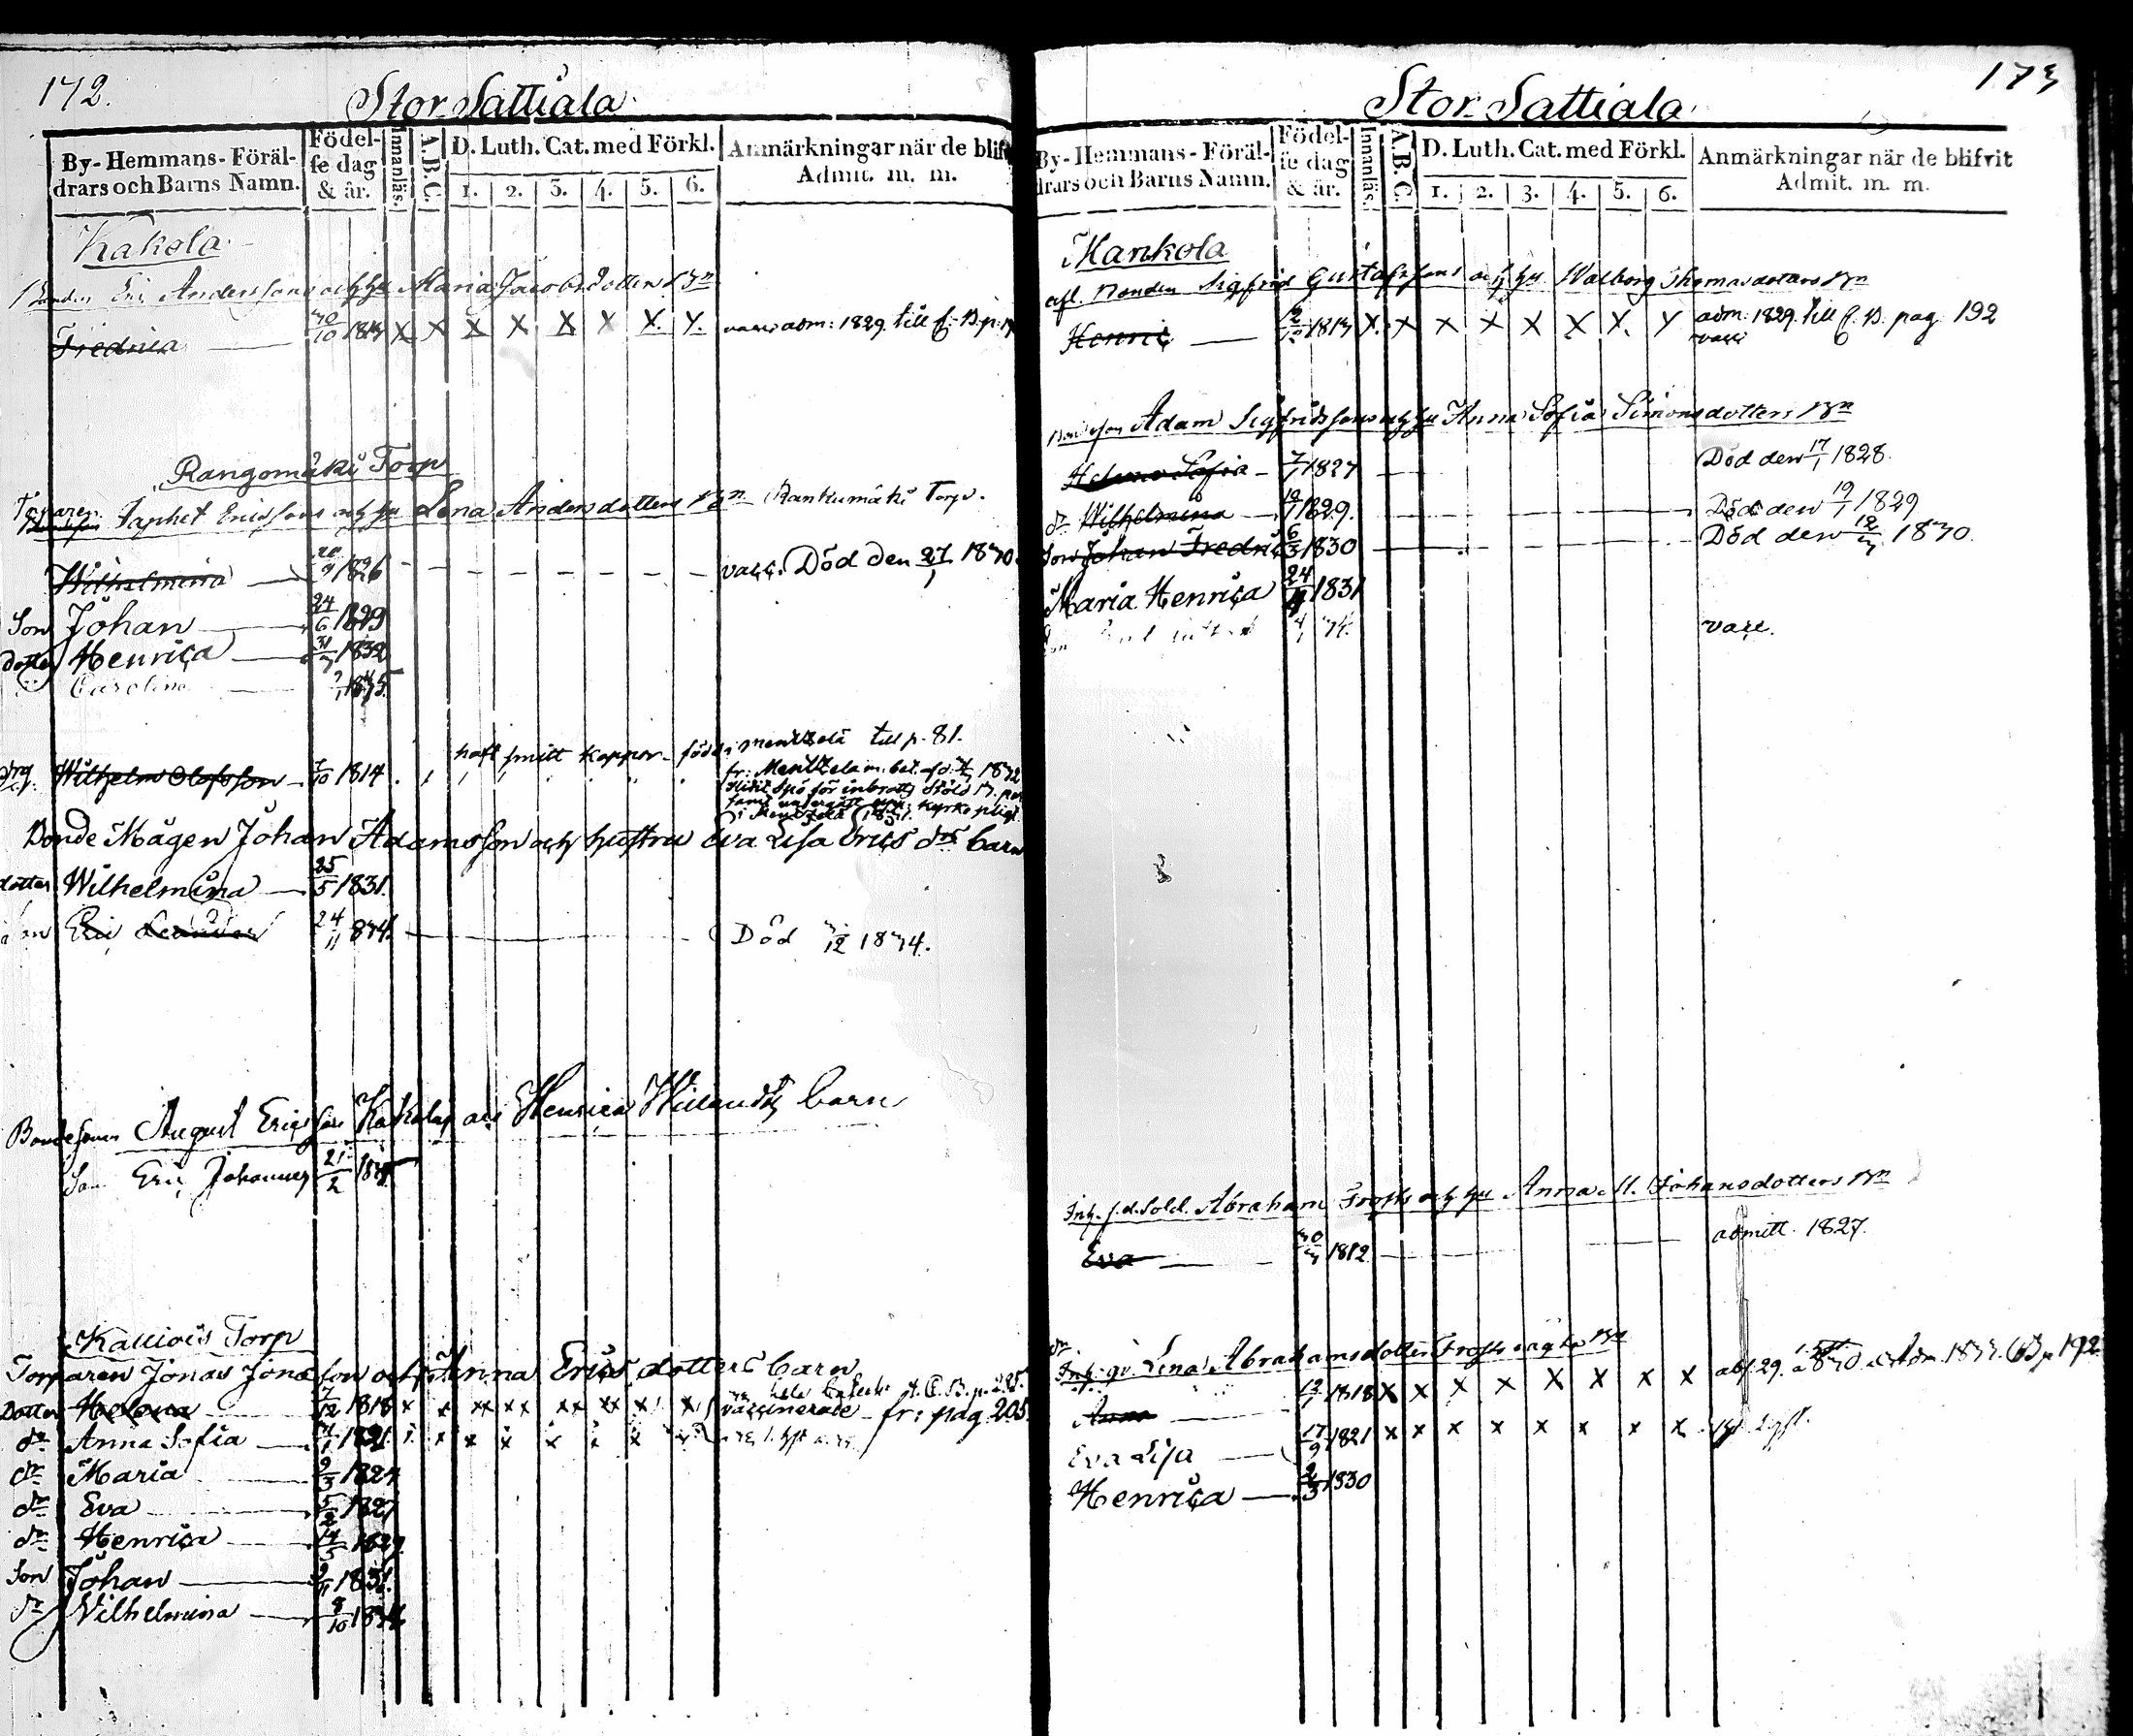 172.
Stor Sattiala
By-Hemmans-Föräl-
drars och Barns Namn.
Födel-
se dag
& år.
Innanläs.
A.B.C.
D. Luth. Cat. med Förkl.
1. 2. 3. 4. 5. 6.
Anmärkningar när de blif
Admit. m. m.
Kakola
Anderssons och hu Maria Jacobsdotters Bn
Fredrica 30/10 1813 X X X X X X X X. vacc adm: 1829. till C. B. p.
Rangomäki Torp
Torparen Japhet Ericssons och hu Lena Andersdotters Bn Rankumäki Torp.
Wilhelmina 1826 vacc. Död den 27/1 1830.
Son Johan 24/6 1829
dotter Henrica 31/3 1832
Carolina 1835
haft smitt koppor född i Mentzelä till p. 81.
Wilhelm Olofsson 1/10 1814 fr: Mentzelä m. bet. 1832
Slitit Spö för inbrott Stöld
kyrkoplikt
i Mentzelä 1831.
Bonde Mågen Johan Adamsson och hustru Eva Lisa Erics dtrs barn
dotter Wilhelmina 25/5 1831.
Son Eric Leander 24/11 1834. Död 3/12 1834.
Bondesonen August Ericsson Kakola och Henrica barn
Son Eric Johannes 21/2 1835
Kalliois Torp
Torparen Jonas Jonasson och Anna Erics dotters barn
Dotter Helena 7/12 1818 x x xx xx xx xx x x vaccinerade fr: pag 205.
dr Anna Sofia 1821. x x x x x x x
dr Maria 9/3 1824
dr Eva 5/2 1827
dr Henrica 14/5 1829
Son Johan 9/11 1831.
dr Wilhelmina 8/10 1834
173
Stor Sattiala
By-Hemmans-Föräl-
drars och Barns Namn.
Födel-
se dag
& år.
Innanläs.
A.B.C.
D. Luth. Cat. med Förkl.
1. 2. 3. 4. 5. 6.
Anmärkningar när de blifvit
Admit. m. m.
Mankola
afl. Bonden Sigfrid Gustafssons och hu Walborg Thomasdotters Bn
Henric 12/10 1813 X. X X X X X X. X adm: 1829. till C. B. pag. 192
vacc
Bondeson Adam Sigfridssons och hu Anna Sofia Simonsdotters Bn
Helena Sofia 7/1 1827 Död den 17/1 1828.
dr Wilhelmina 1829. Död den 19/1 1829
Son Johan Fredric 6/3 1830 Död den 12/3 1830.
Maria Henrica 24/4 1831
vacc.
Inh. f.d. Sold. Abraham Frosts och hu Anna M. Johansdotters Bn
Eva 30/3 1812 admitt. 1827.
Inh. qv. Lena Abrahamsdotter Frosts oägta Bn
Anna 13/1 1818 X X X X X X X X abs. 29. Adm. 1833. CB p 192
Eva Lisa 17/9 1821 x x x x x x x x.
Henrica 2/3 1830